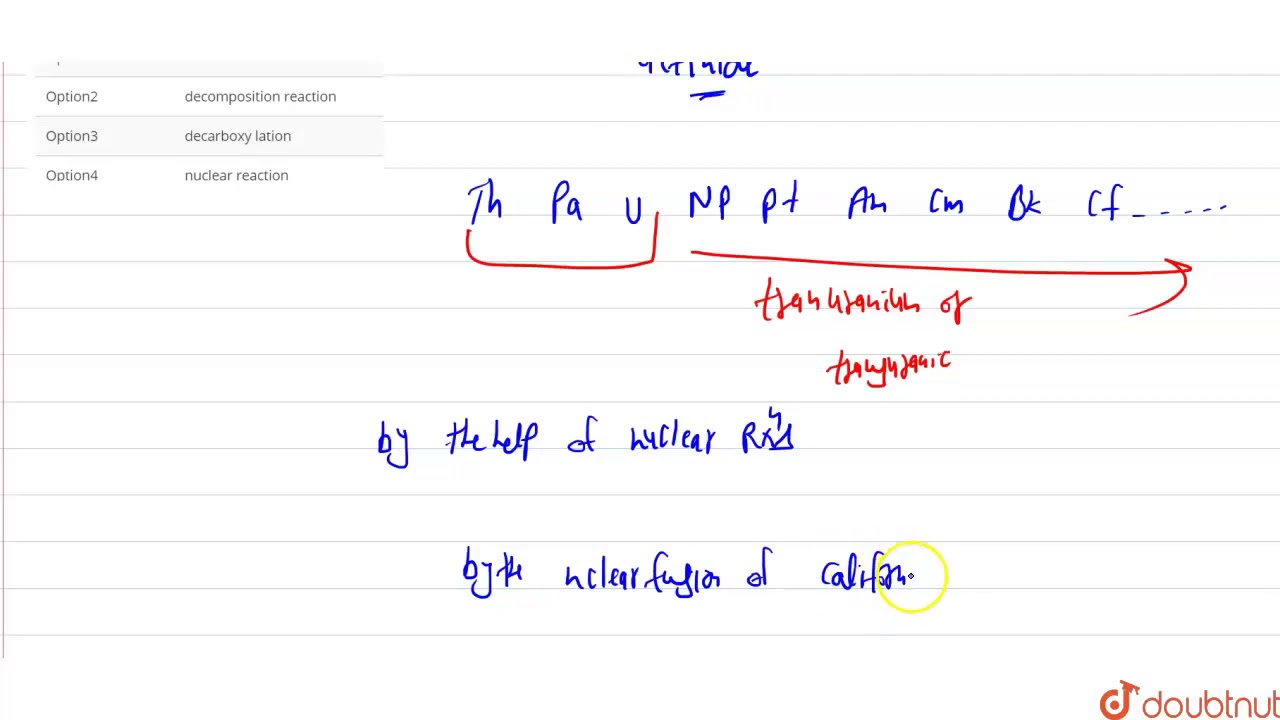 Option2 decomposition reaction
Option3 decarboxy lation
Option4 nuclear reaction
Th Pa U NP Pt Am Cm Bk Cf ------
transuranium or
transuranic
by the help of nuclear Rxn
by the nclear fusion of Californ
doubtnut